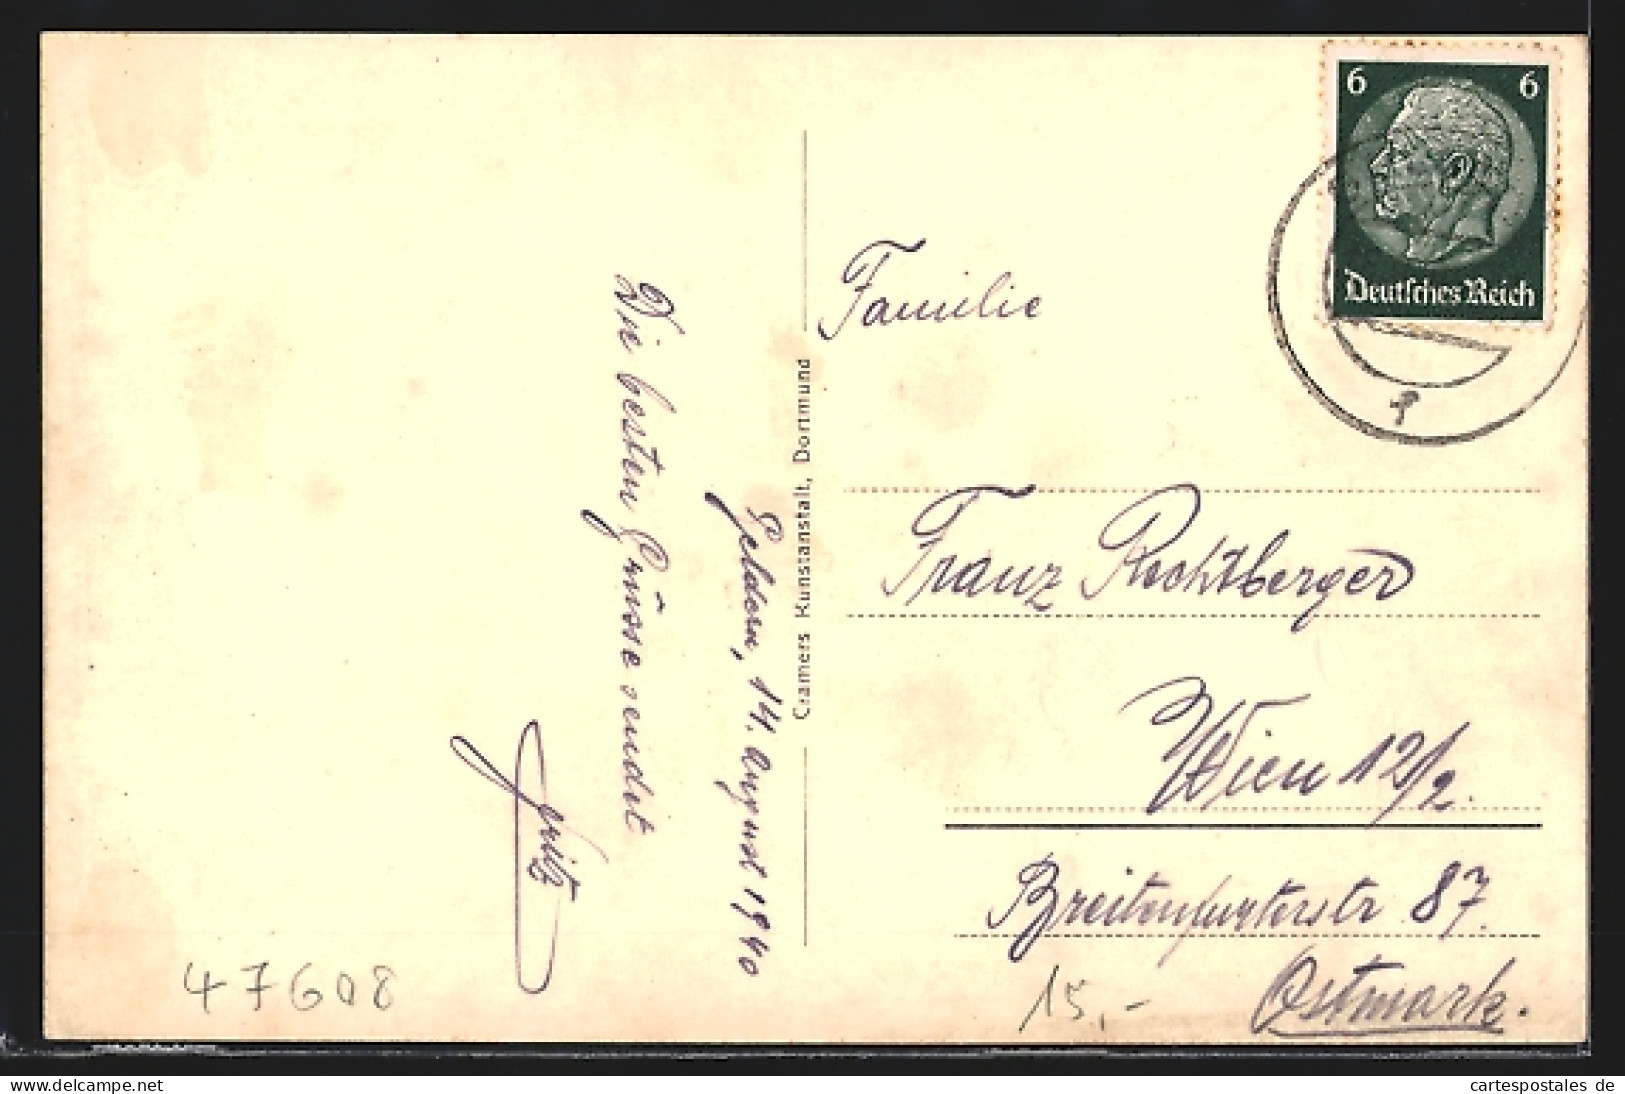 Geldern, 14. August 1940
Die besten Grüsse sendet
Fritz
47608
Cramers Kunstanstalt, Dortmund
6 6
Deutsches Reich
Familie
Franz Rechtberger
Wien 12/2.
Breitenfurterstr 87.
Ostmark.
15,-
www.delcampe.net
cartespostales de